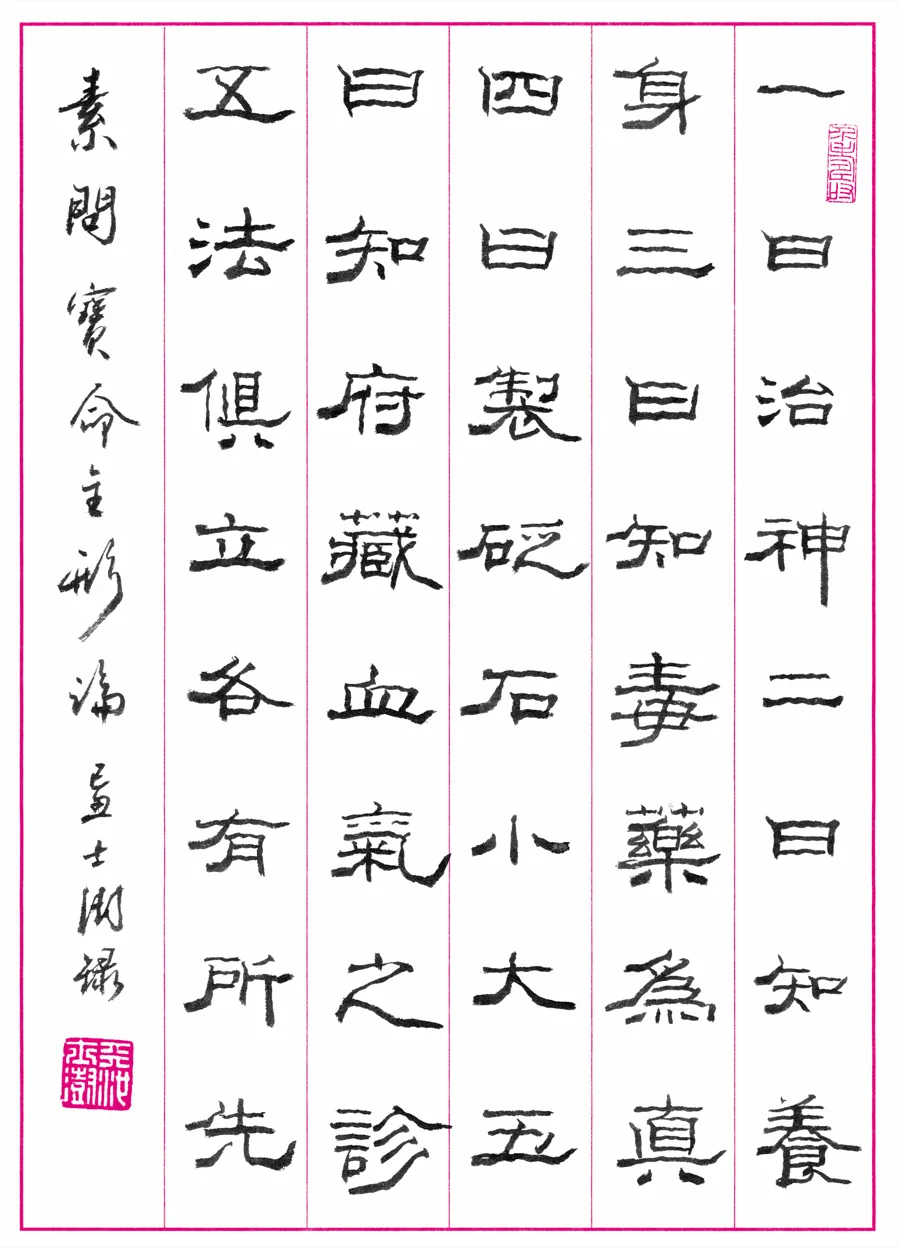 一曰治神二曰知養
身三曰知毒藥為真
四曰製砭石小大五
曰知府藏血氣之診
五法俱立各有所先
素問寶命全形論 士澍錄